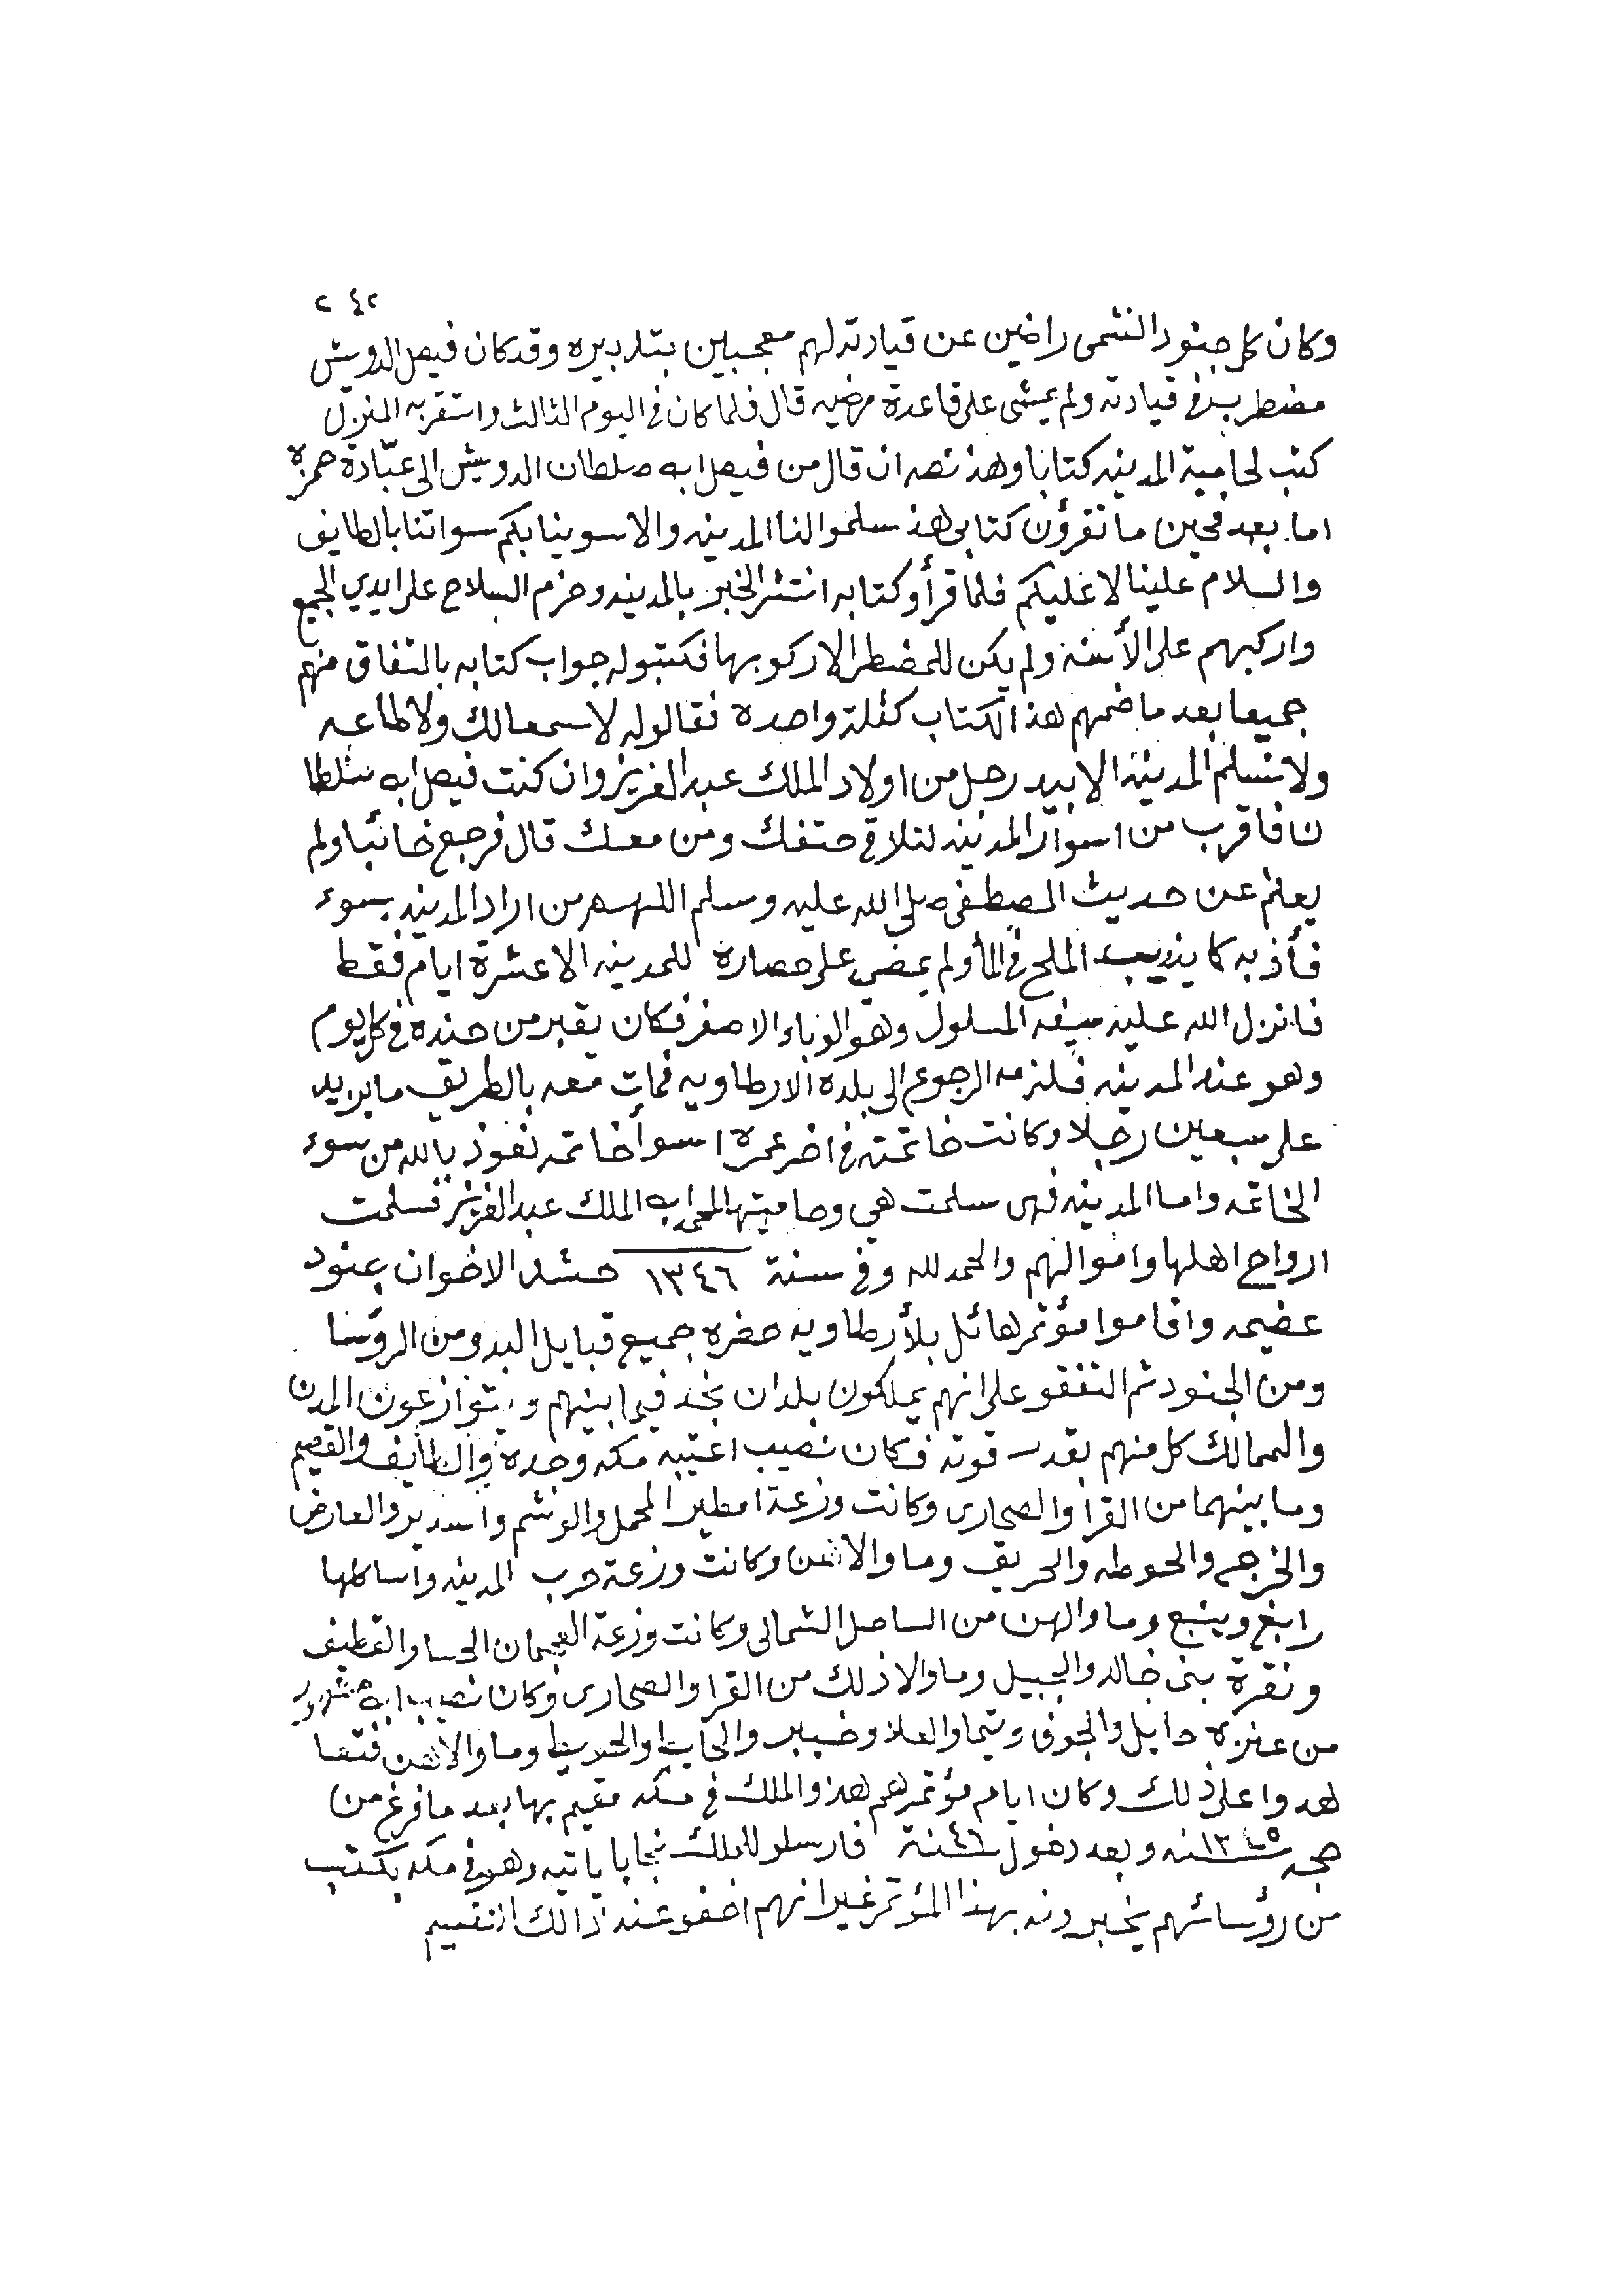 ٢٤٢
وكان كل جنود النشمى راضين عن قيادته لهم معجبين بتدبيره وقد كان فيصل الدويش
مضطرب في قيادته ولم يمشى على قاعدة مرضيه قال فلما كان في اليوم الثالث واستقر به المنزل
كتب لحامية المدينه كتابا وهذ نصه ان قال من فيصل ابه صلطان الدويش الى عبّادة حمزه
اما بعد فحين ما تقرؤن كتابي هذ سلموا لنا المدينه والا سوينا بكم سواتنا بالطايف
والسلام علينا لا عليكم فلما قرأو كتابه انتشر الخبر بالمدينه وحزم السلاح على ايدي الجميع
واركبهم على الأسنة ولم يكن للمضطر الا ركوبها فكتبو له جواب كتابه بالتفاق منهم
جميعا بعد ما ضمهم هذ الكتاب كتلة واحده فقالو له لا سمعا لك ولا طاعه
ولا نسلم المدينة الا بيد رجل من اولاد الملك عبد العزيز وان كنت فيصل ابه سلطا
ن فا قرب من اسوار المدينه لتلاقي حتفك ومن معك قال فرجع خائبا ولم
يعلم عن حديث المصطفى صلى الله عليه وسلم اللهم من اراد المدينه بسوء
فأذبه كما يذيب الملح في الماء ولم يمضي على حصاره للمدينه الا عشرة ايام فقط
فانزل الله عليه سيفه المسلول وهو الوباء الاصفر فكان يقبر من جنده في كل يوم
وهو عند المدينه فلزمه الرجوع الى بلده الارطاويه فمات معه بالطريق ما يزيد
على سبعين رجلا وكانت خاتمته في اخر عمره اسوأ خاتمه نعوذ بالله من سوء
الخاتمه واما المدينه فهي سلمت هي وحاميتها لمحمد ابه الملك عبد العزيز فسلمت
ارواح اهلها واموالهم والحمد لله وفي سنة ١٣٤٦ حشد الاخوان بجنود
عضيمه واقاموا مؤتمر هائل بلأرطاويه حضره جميع قبايل البدو من الرؤسا
ومن الجنود ثم التفقو على انهم يملكون بلدان نجد فيما بينهم ويتوازعون المدن
والممالك كل منهم بقدر قوته فكان نصيب اعتيبه مكه وحده والطايف والقصيم
وما بينهما من القرا والصحارى وكانت وزعة امطير المحمل والوشم واسدير والعارض
والخرج والحوطه والحريق وما والاهن وكانت وزعة حرب المدينه واساكلها
رابغ وينبع وما والهن من الساحل الشمالي وكانت وزعة العجمان الحسا والقطيف
ونقرة بني خالد والجبيل وما والا ذلك من القرا والصحارى وكان نصيب ابه مشهور
من عنزه حايل والجوف وتيما والعلا وخيبر والحايط والحويط وما والاهن فتعا
هدوا على ذلك وكان ايام مؤتمرهم هذ والملك في مكه مقيم بها بعد ما فرغ من
حجه سنه ١٣٤٥ وبعد دخول سنة ٤٦ فارسلو للملك نجابا ياتيه وهو في مكه بكتب
من رؤسائهم يخبرونه بهذا المؤتمر غير انهم اخفو عنه ذالك التقسيم